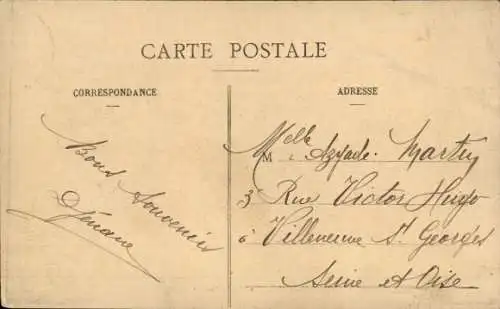 CARTE POSTALE
CORRESPONDANCE
ADRESSE
Bons Souvenirs
Melle Azyade Martin
3 Rue Victor Hugo
à Villeneuve St Georges
Seine et Oise